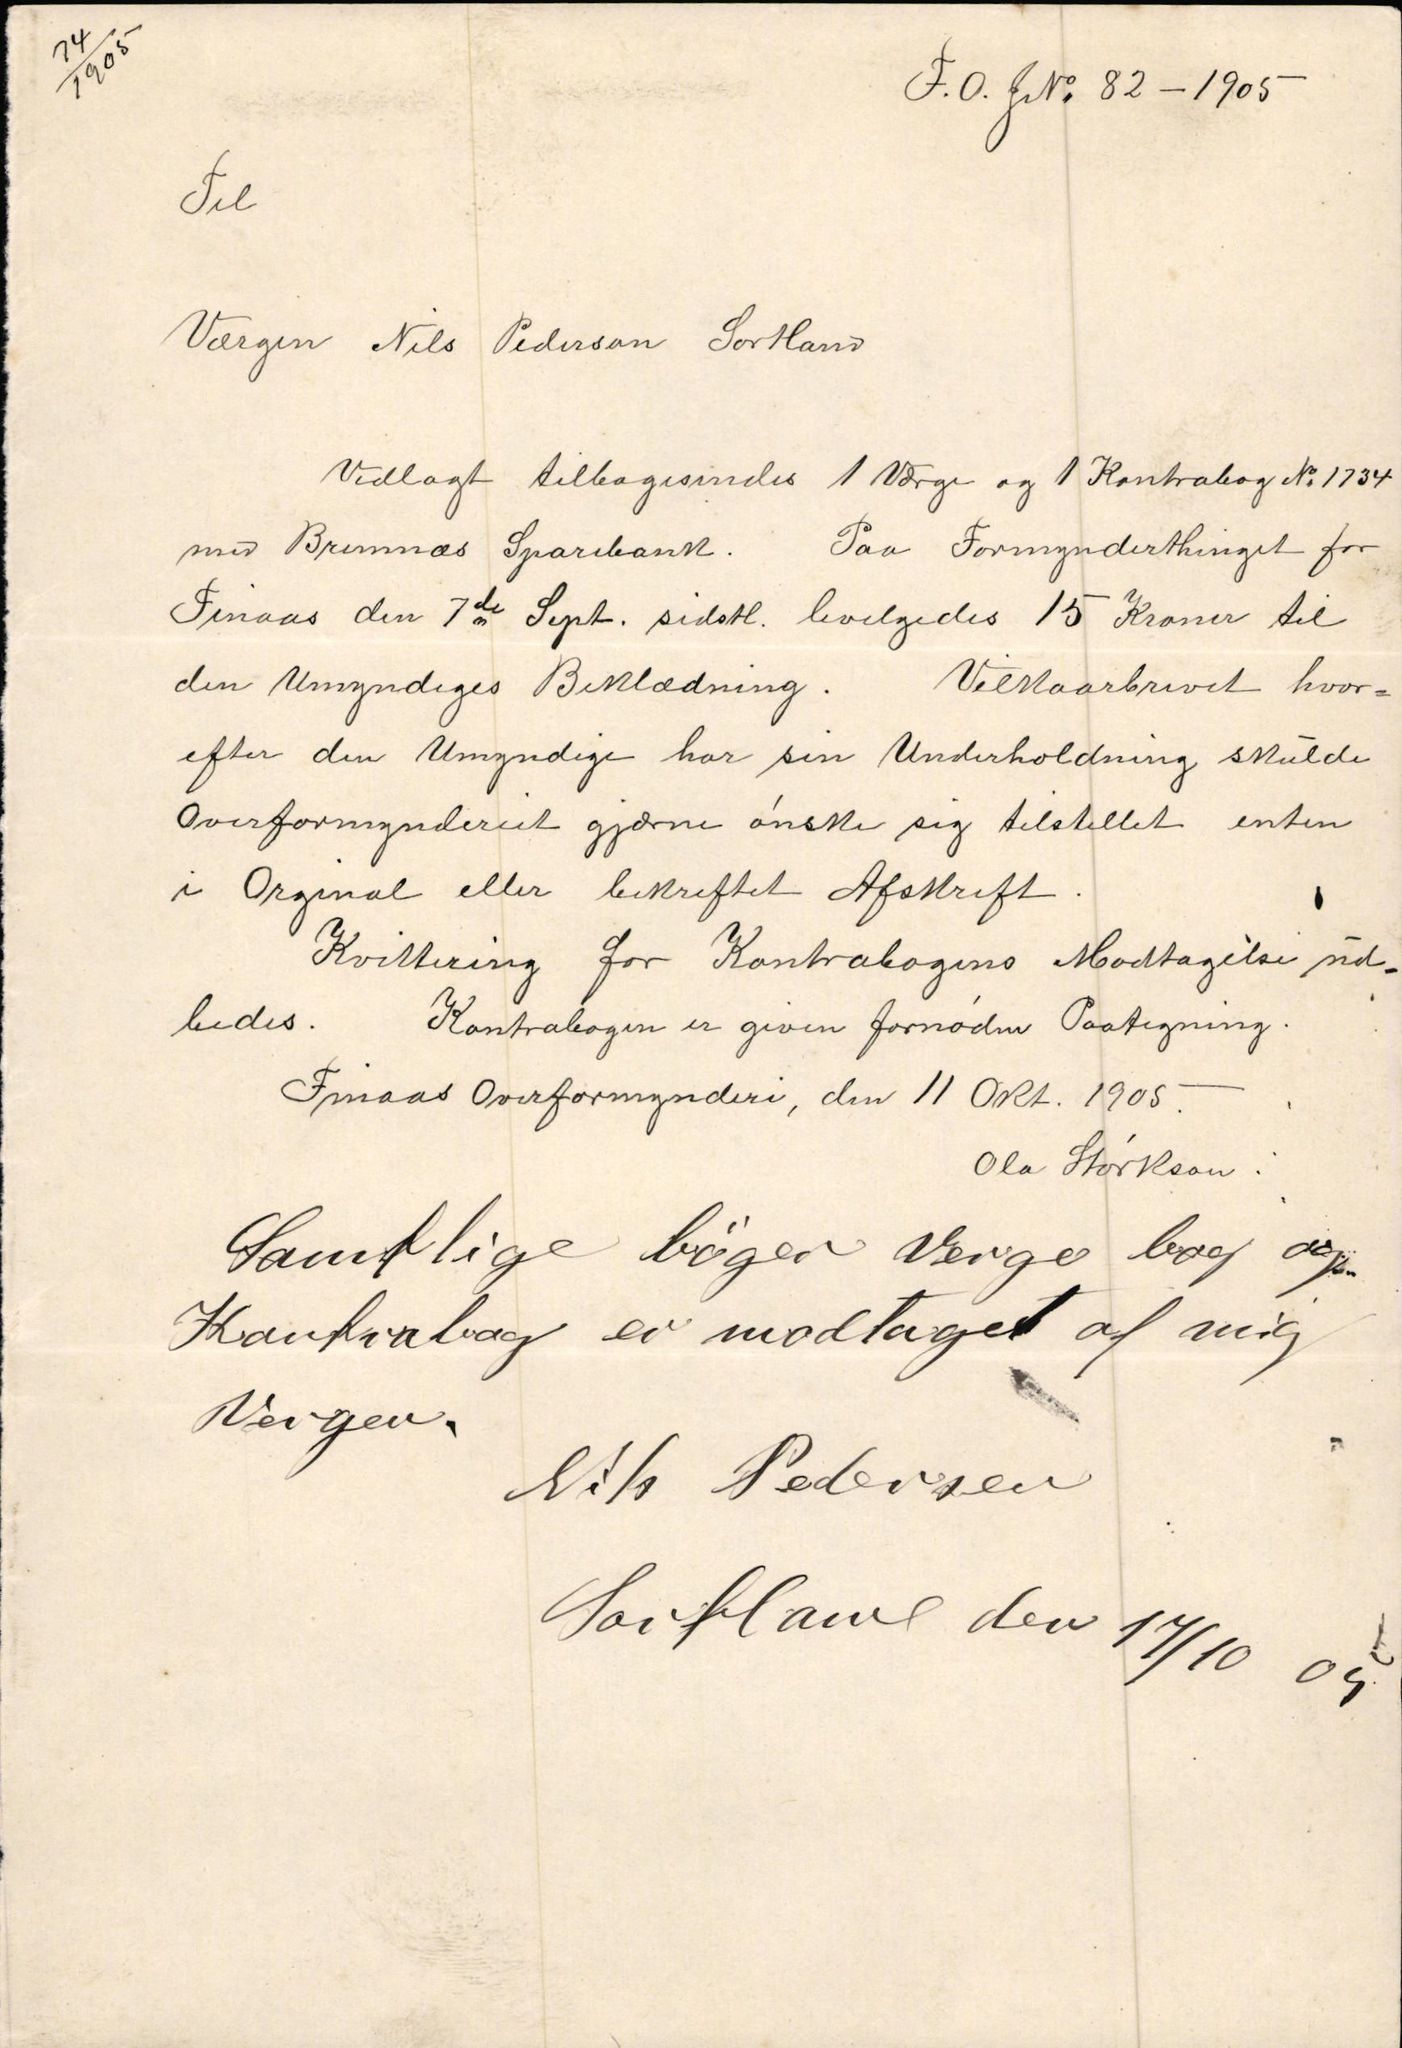 74/1905
F.O. JNo. 82 – 1905
Til
Værgen Nils Pederson Sortland
Vedlagt tilbagesendes 1 Værge og 1 Kontrabog No. 1734
med Bremnæs Sparebank. Paa Formynderthinget for
Finaas den 7de Sept. sidstl. bevilgedes 15 Kroner til
den Umyndiges Beklædning. Vilkaarbrevet hvor=
efter den Umyndige har sin Underholdning skulde
Overformynderiet gjærne ønske sig tilstillet enten
i Orginal eller bekreftet Afskrift.
Kvittering for Kontrabogens Modtagelse ud=
bedes. Kontrabogen er given fornøden Paategning.
Finaas Overformynderi, den 11 Okt. 1905.
Ola Størkson.
Samtlige böger Verge bog og
Kontrabog er modtaget af mig
Vergen.
Nils Pedersen
Sortland den 17/10 05